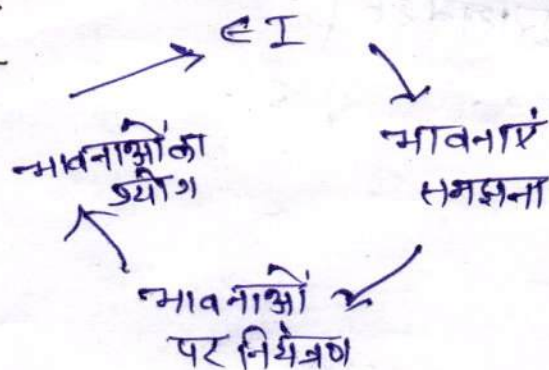 EI
भावनाएं
समझना
भावनाओं
पर नियंत्रण
भावनाओं का
प्रयोग